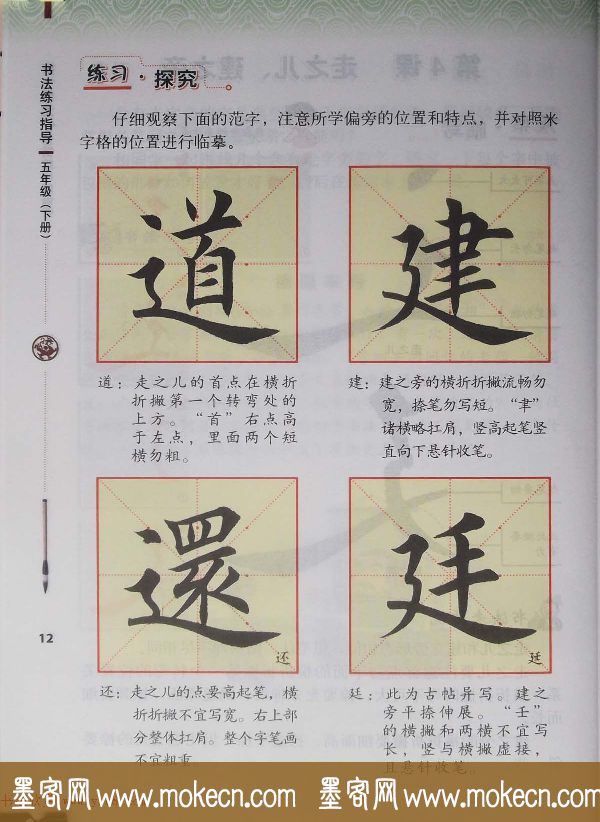 书法练习指导 五年级（下册）
练习·探究
仔细观察下面的范字，注意所学偏旁的位置和特点，并对照米
字格的位置进行临摹。
道
建
道：走之儿的首点在横折
折撇第一个转弯处的
上方。“首”右点高
于左点，里面两个短
横勿粗。
建：建之旁的横折折撇流畅勿
宽，捺笔勿写短。“聿”
诸横略扛肩，竖高起笔竖
直向下悬针收笔。
還
还
廷
廷
还：走之儿的点要高起笔，横
折折撇不宜写宽。右上部
分整体扛肩。整个字笔画
不宜粗重
廷：此为古帖异写。建之
旁平捺伸展。“壬”
的横撇和两横不宜写
长，竖与横撇虚接，
且悬针收笔。
12
墨客网 www.mokecn.com 墨客网 www.mokecn.com